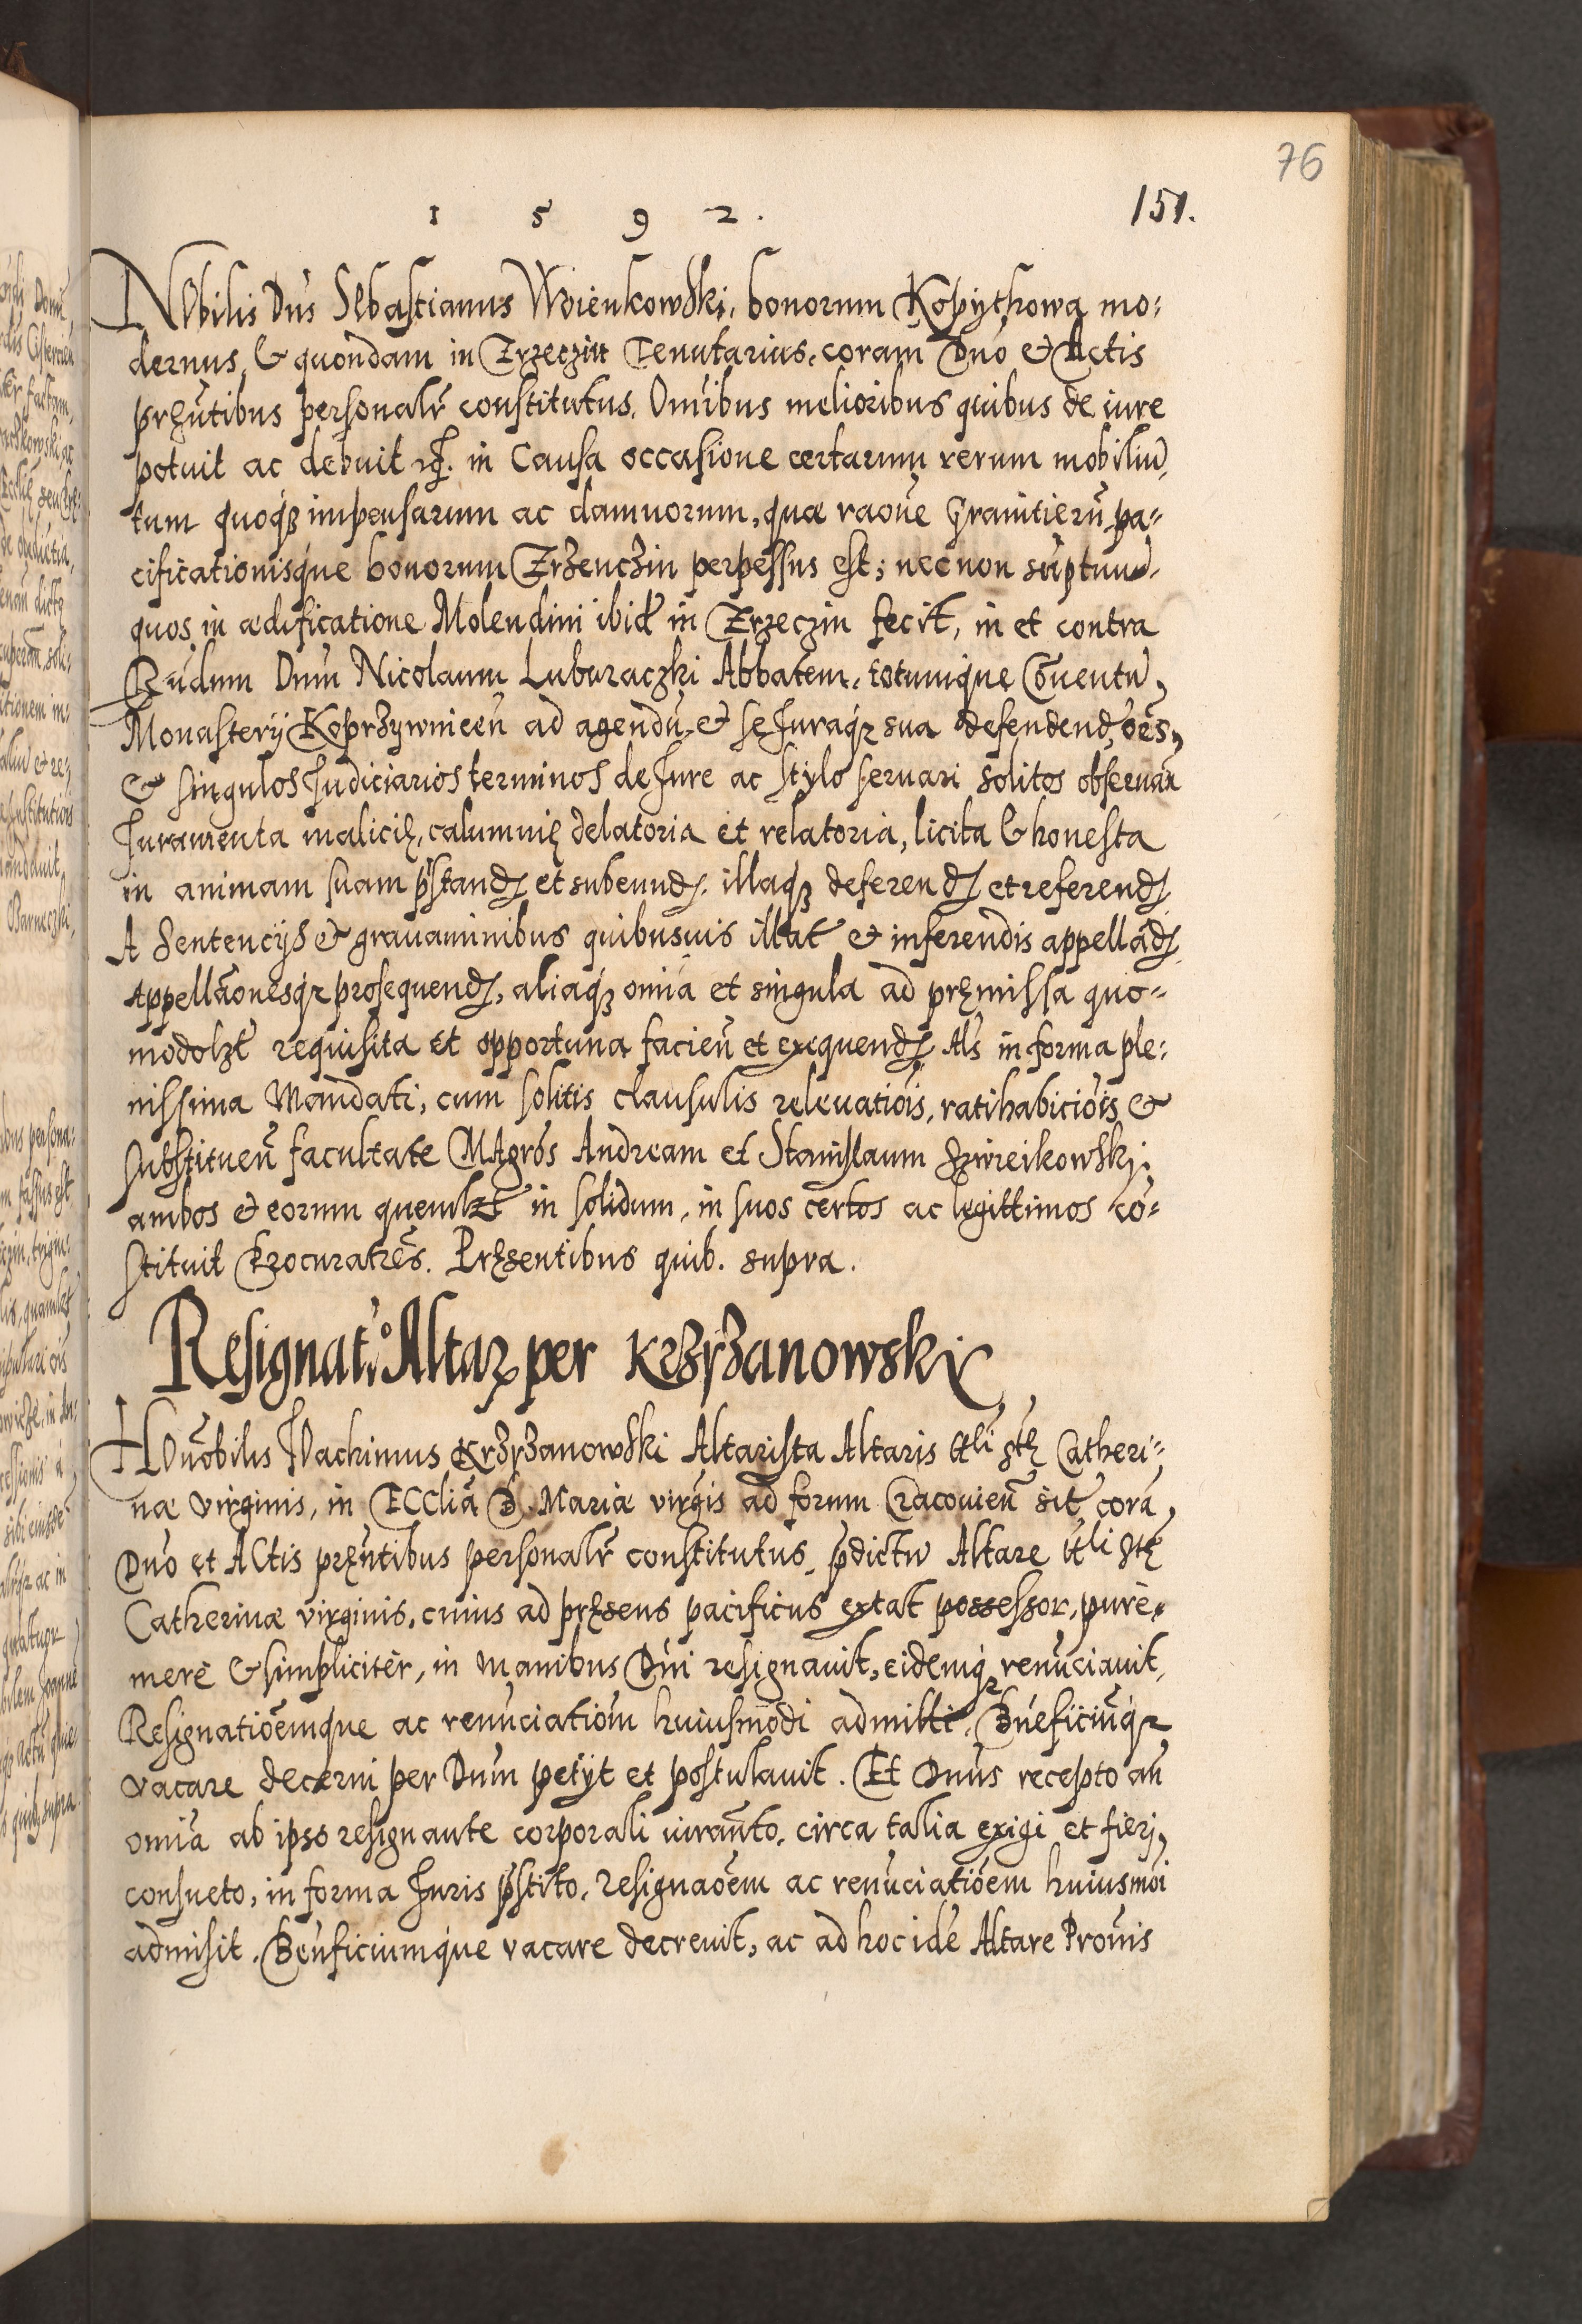 76
1 5 9 2.
151.
NObilis Dns Sebastianus Woienkowski, bonorum Kopythowa mo:
dernus, & quondam in Trzeczin Tenutarius, coram Dno et Actis
pręntibus personalr constitutus. Omibus melioribus quibus de iure
potuit ac debuit in Causa occasione certarum rerum mobiliu,
tum quoq impensarum ac damnorum, quæ raone Granitierū pa-
cificationisque bonorum Trzenczin perpessus est; necnon sūptuu
quos in ædificatione Molendini ibid in Trzeczin fecit, in et contra
Rndum Dnm Nicolaum Lubwraczki Abbatem, totumque Cōuentu,
Monasterij Koprzywnicen̄ ad agendū, et se Iuraq sua defendend, oēs,
& singulos Iudiciarios terminos de Iure ac stylo seruari solitos obseruan
Iuramenta malicię, calumnię delatoria et relatoria, licita & honesta
in animam suam pstand et subeund. illaq deferend et referend
A Sentencijs et grauaminibus quibusuis illat et inferendis appellād
Appellāonesq prosequend, aliaq omia et singula ad pręmissa quo-
modolzt requisita et opportuna facien̄ et exequend Als in forma ple:
nissima Mandati, cum solitis clausulis releuatiois, ratihabiciois et
substituen̄ facultate MAgros Andream et Stanislaum Szwreikowski
ambos et eorum quemlzt in solidum, in suos certos ac legittimos cō-
stituit Procuratres. Pręsentibus quib. supra.
Resignat.o Altar per Krzyzanowski
HOnobilis IOachimus Krzyzanowski Altarista Altaris ttli stę Catheri-
næ virginis, in ECClia B. Mariæ virgis ad forum Cracouien̄ sit corā,
Dno et ACtis pręntibus personalr constitutus, pdictu Altare ttli stę
Catherinæ virginis, cuius ad pręsens pacificus extat possessor, purè
merè & simplicitèr, in manibus Dni resignauit, eidemq renūciauit,
Resignatioēmque ac renūciatiom huiusmodi admitti, Bneficiūq
vacare decerni per Dnm petÿt et postulauit. Et Dnus recepto an
omia ab ipso resignante corporali iuranto, circa talia exigi et fieri,
consueto, in forma Iuris pstito, resignaoēm ac renūciatioēm huiusmoi
admisit, Benficiumque vacare decreuit, ac ad hoc idē Altare Prouis